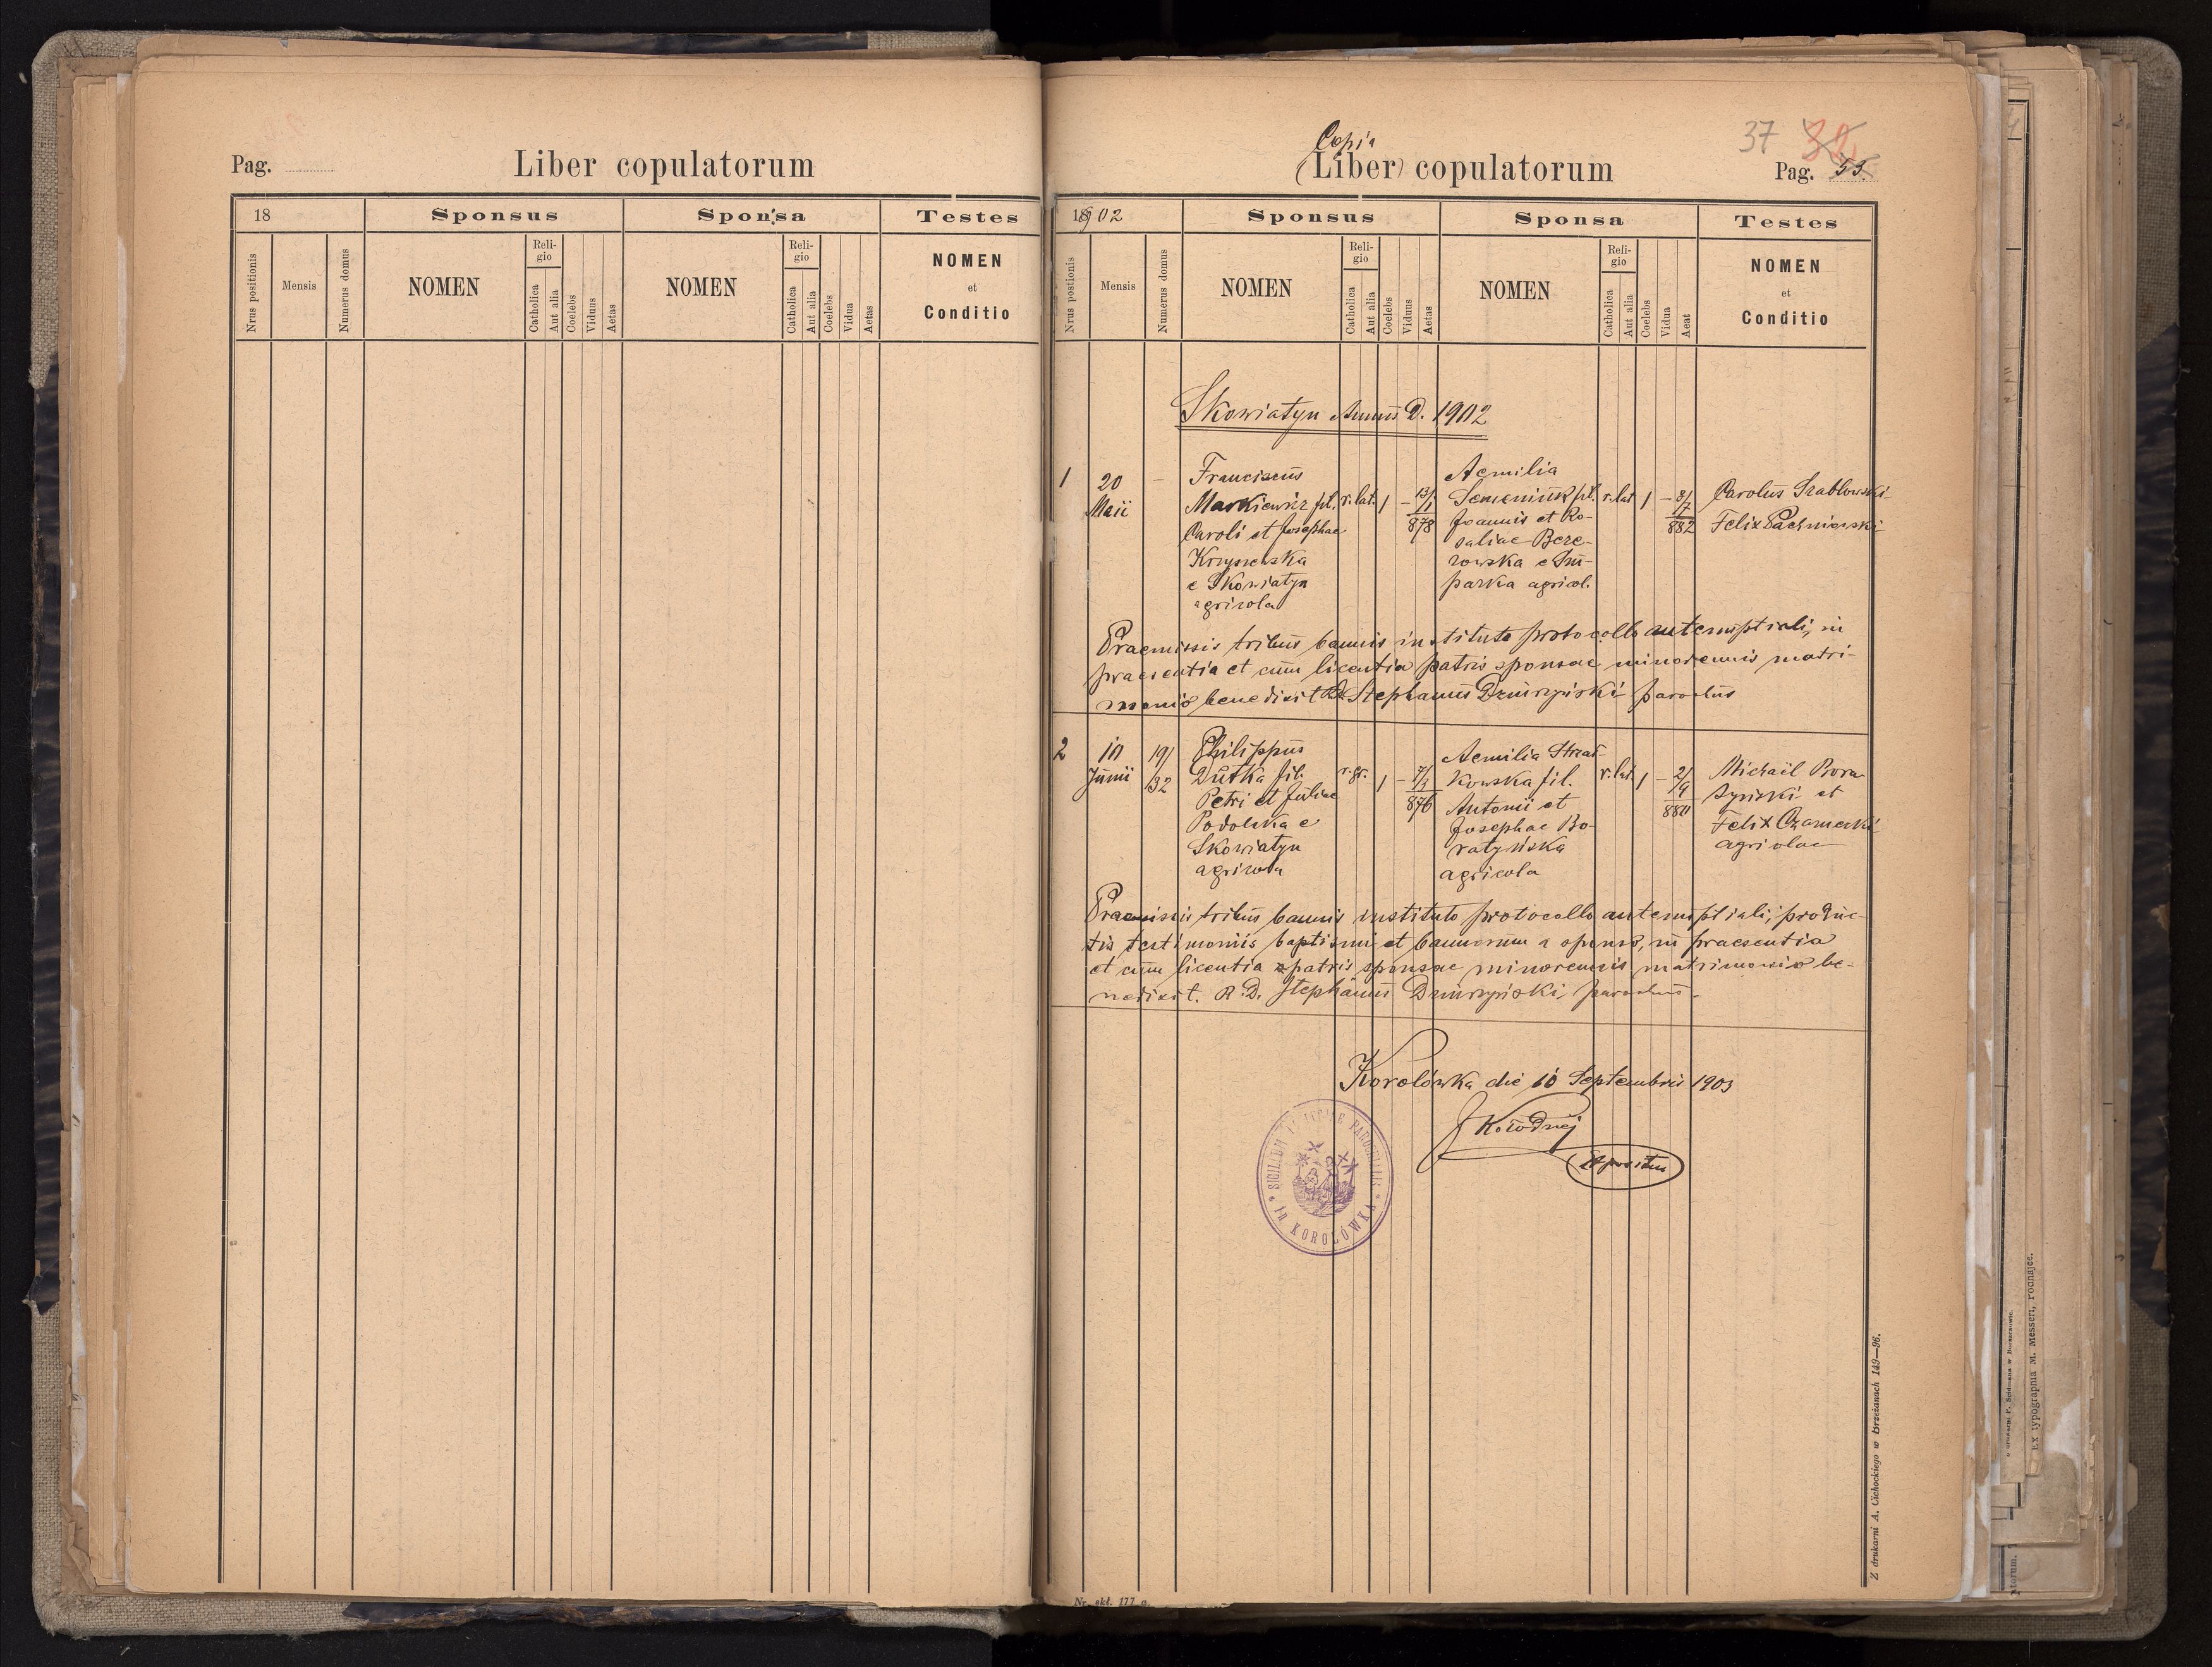 Pag.
Liber copulatorum
18
Sponsus
Sponsa
Testes
Nrus positionis
Mensis
Numerus domus
NOMEN
Reli-
gio
Catholica
Aut alia
Coelebs
Viduus
Aetas
NOMEN
Reli-
gio
Catholica
Aut alia
Coelebs
Vidua
Aetas
NOMEN
et
Conditio
Copia
(Liber) copulatorum
37 32
Pag. 53.
1902
Sponsus
Sponsa
Testes
Nrus postionis
Mensis
Numerus domus
NOMEN
Reli-
gio
Catholica
Aut alia
Coelebs
Viduus
Aetas
NOMEN
Reli-
gio
Catholica
Aut alia
Coelebs
Vidua
Aeat
NOMEN
et
Conditio
Skowiatyn Annus D. 1902
1
20
Maii
–
Franciscus
Markiewicz fil.
Caroli et Josephae
e Skowiatyn
agricola
r. lat.
1
–
13/1
878
Aemilia
Semeniuk fil.
Joannis et Ro-
saliae Bere-
zowska e Su-
parka agricol.
r. lat
1
–
8/7
882
Carolus Szablowski
Felix
Praemissis tribus bannis instituto protocollo antenuptiali, in
praesentia et cum licentia patris sponsae minorennis matri-
monio benedixit RD. Stephanus Dziurzyński parochus
2
10
Junii
19/
/32
Philippus
Dutka fil.
Petri et Juliae
Podolska e
Skowiatyn
agricola
r. gr.
1
–
876
Aemilia
kowska fil.
Antonii et
Josephae Bo-
ratyńska
agricola
r. lat
1
–
2/4
880
Michaël Bora
tyński et
Felix
agricolae
Praemissis tribus bannis instituto protocollo antenuptiali, produc-
tis testimoniis baptismi et bannorum a sponso, in praesentia
et cum licentia patris sponsae minorennis matrimonio be-
nedixit. R.D. Stephanus Dziurzyński, parochus.
Korolówka die 10 Septembris 1903
J Kołodziej
Expositus
SIGILLUM
IN KOROLÓWKA
Z drukarni A. Cichockiego w Brzeżanach 149—96.
Nr. skł. 177 a
Ex typographia M. Messeri, Podhajce.